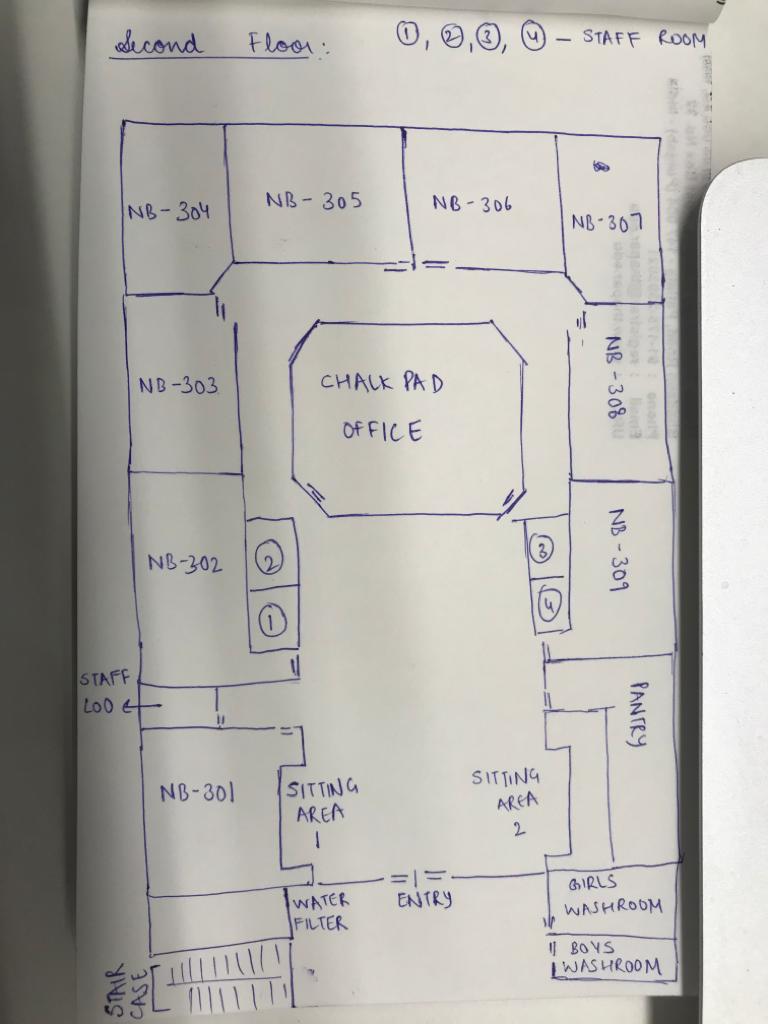 Second Floor: ①, ②, ③, ④ – STAFF ROOM
NB-304
NB-305
NB-306
NB-307
NB-303
CHALK PAD
OFFICE
NB-308
NB-302
②
①
③
④
NB-309
STAFF
LOO
PANTRY
NB-301
SITTING
AREA
1
SITTING
AREA
2
WATER
FILTER
ENTRY
GIRLS
WASHROOM
BOYS
WASHROOM
STAIR
CASE